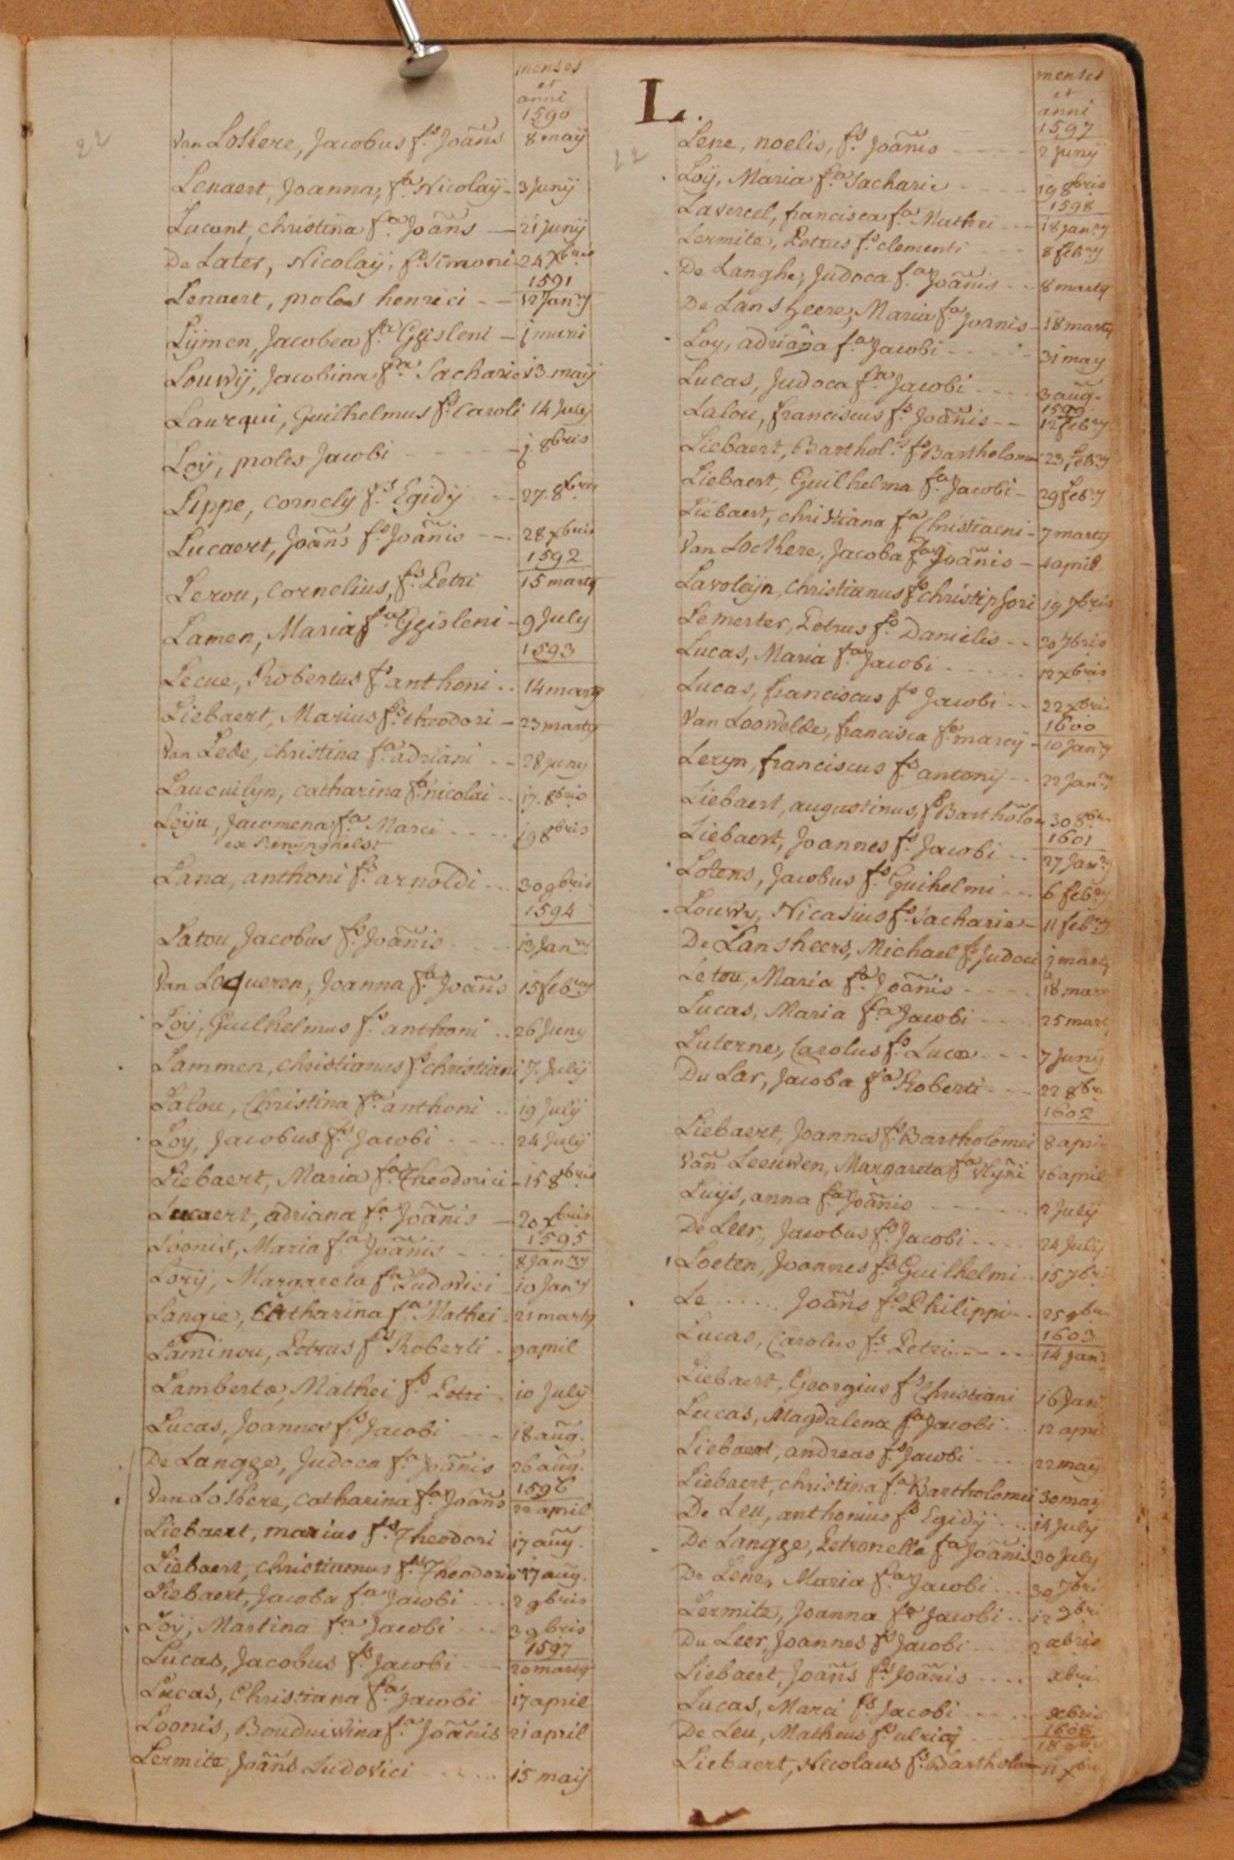 menses
et
anni
1590
22
Van Lothere, Jacobus fs. Joãnis 8 maij
Lenaert, Joanna, fa. Nicolaÿ - 3 Junÿ
Lucont, christina fa. Joãns - 21 junÿ
De Later, Nicolaÿ, fs. Simoni 24 xbris
1591
Lenaert, proles henrici - - 12 Janry
Lÿmen, Jacobea fa. Gÿisleni -
Louwÿ, Jacobina fa. Sacharie 13 maij
Laurqui, Guilhelmus fs. Caroli 14 July
Loÿ, proles Jacobi - - - 8bris
Lippe, cornely fs. Egidÿ - - 27. 8bris
Lucaert, Joãns fs Joãnis - - 28 xbris
1592
Lerou, Cornelius, fs. Petri 15 marty
Lamen, Maria fa Gÿisleni - 9 July
1593
Lecue, Robertus fs anthoni . . 14 marty
Liebaert, Marius fs. theodori - 23 marty
Van Lede, christina fa. adriani - - 28 juny
Laucuilyn, catharina fa. nicolai . . 17. 8bris
Leÿn, Jacomena, fa. Marci - - - - 19 8bris
ex Renynghelst
Lana, anthoni fs. arnoldi - - - 30 9bris
1594
Latou, Jacobus fs. Joãnis - - - 13 Janry
Van Loqueren, Joanna fa. Joãns 15 febry
Loÿ, Guilhelmus fs. anthoni . . 26 Juny
Lammen, christianus fs. christiani 17 July
Latou, Christina fa. anthoni . . 19 July
Loy, Jacobus fs. Jacobi - - - - 24 July
Liebaert, Maria fa. Theodorici - 15 8bris
Lucaert, adriana fa. Joãnis - 20 xbris
1595
Loonis, Maria fa. Joãnis - - - 8 Janry
Lorÿ, Margareta fa. Ludovici - 10 Janry
Langie, Catharina fa Mathei - 21 marty
Laminou, Petrus fs Roberti - 9 april
Lamberta Mathei fs. Petri - 10 July
Lucas, Joannes fs. Jacobi - - 18 aug.
De Langhe, Judoca fa. Joãnis 26 aug.
1596
Van Lothere, catharina fa Joãns 22 april
Liebaert, marius fs. Theodori 17 aug.
Liebaert, Christianus fs. Theodorici 17 aug.
Liebaert, Jacoba fa Jacobi - - - 2 9bris
Loÿ, Martina fa. Jacobi - - - 29 bris
1597
Lucas, Jacobus fs. Jacobi - - - 20 marty
Lucas, Christiana fa. Jacobi - 17 april
Loonis, Bouduiwina fa. Joãnis 21 april
Lermite Joãns Ludovici - - - - - 15 maij
L.
menses
et
anni
1597
22
Lene, noelis, fs. Joãnis - - - - 2 Junÿ
Loÿ, Maria fa Sacharie - - - - 19 8bris
1598
Lavereel, francisca fa Mathei - - - 18 Janry
Lermite, Petrus fs clementi 8 febry
De Langhe, Judoca fa Joãnis - - - 8 marty
De Lansheere, Maria fa Joanis - 18 marty
Loy, adriãna fa. Jacobi - - - - - 31 may
Lucas, Judoca fa Jacobi - - - 3 aug.
1599
Latou, franciscus fs Joãnis - - - 12 febry
Liebaert, Barthol. fs Bartholomei 23 febry
Liebaert, Guilhelma fa. Jacobi - 29 febry
Liebaert, christiana fa Christiaeni - 7 marty
Van Lothere, Jacoba fa Joãnis - 4 april
Lavoleijn, christianus fs christipfori 19 7bris
Lemerter, Petrus fs. Danielis - - 20 7bris
Lucas, Maria fa Jacobi - - - - 12 xbris
Lucas, franciscus fs Jacobi - - 22 xbris
1600
Van Loowelde, francisca fa marcÿ - 10 Janry
Lezyn, franciscus fs antonÿ - - - 22 Janry
Liebaert, augustinus, fs Bartholom 30 8bris
1601
Liebaert, Joannes fs Jacobi - - 27 Janry
Lotens, Jacobus fs. Guihelmi - - - 6 febry
Louwÿ, Nicasius fs. Sacharie - 11 febry
De Lansheers, Michael fs. Judoci
Letou, Maria fa. Joãnis - - - - 18 mars
Lucas, Maria fa. Jacobi - - - 25 mart
Luterne, Carolus fs. Luca - - - 7 Juny
Du Lar, Jacoba fa. Roberti - - - 22 8br
1602
Liebaert, Joannes fs. Bartholomei 8 apri
Van Leeuwen, Margareta fa 16 april
Luijs, anna fa Joãnis - - - - - - 2 Julÿ
De Leer, Jacobus fs. Jacobi - - - 24 Julÿ
Loeten, Joannes fs Guilhelmi - - 15 7bri
Le . . . . . . Joãns fs Philippi - - 25 9br
1603
Lucas, Carolus fs. Petri - - - - 14 Jan
Liebaert, Georgius fs Christiani 16 Jan
Lucas, Magdalena fa Jacobi - - 12 apri
Liebaert, andreas fs Jacobi - - - 22 may
Liebaert, christina fa Bartholomei 30 may
De Leu, anthonius fs Egidÿ - - - 14 July
De Langhe, Petronella fa Joãnis 30 July
De Lene, Maria fa Jacobi - - - 30 7bri
Lermite, Joanna fa Jacobi - - - 12 9bri
Du Leer, Joannes fs Jacobi - - - 2 xbris
Liebaert, Joãns fs. Joãnis - - - - xbri
Lucas, Marci fs Jacobi - - - - xbris
1608
De Leu, Matheus fs ulricÿ - - - -
Liebaert, Nicolaus fs. Bartholom 11 xbri